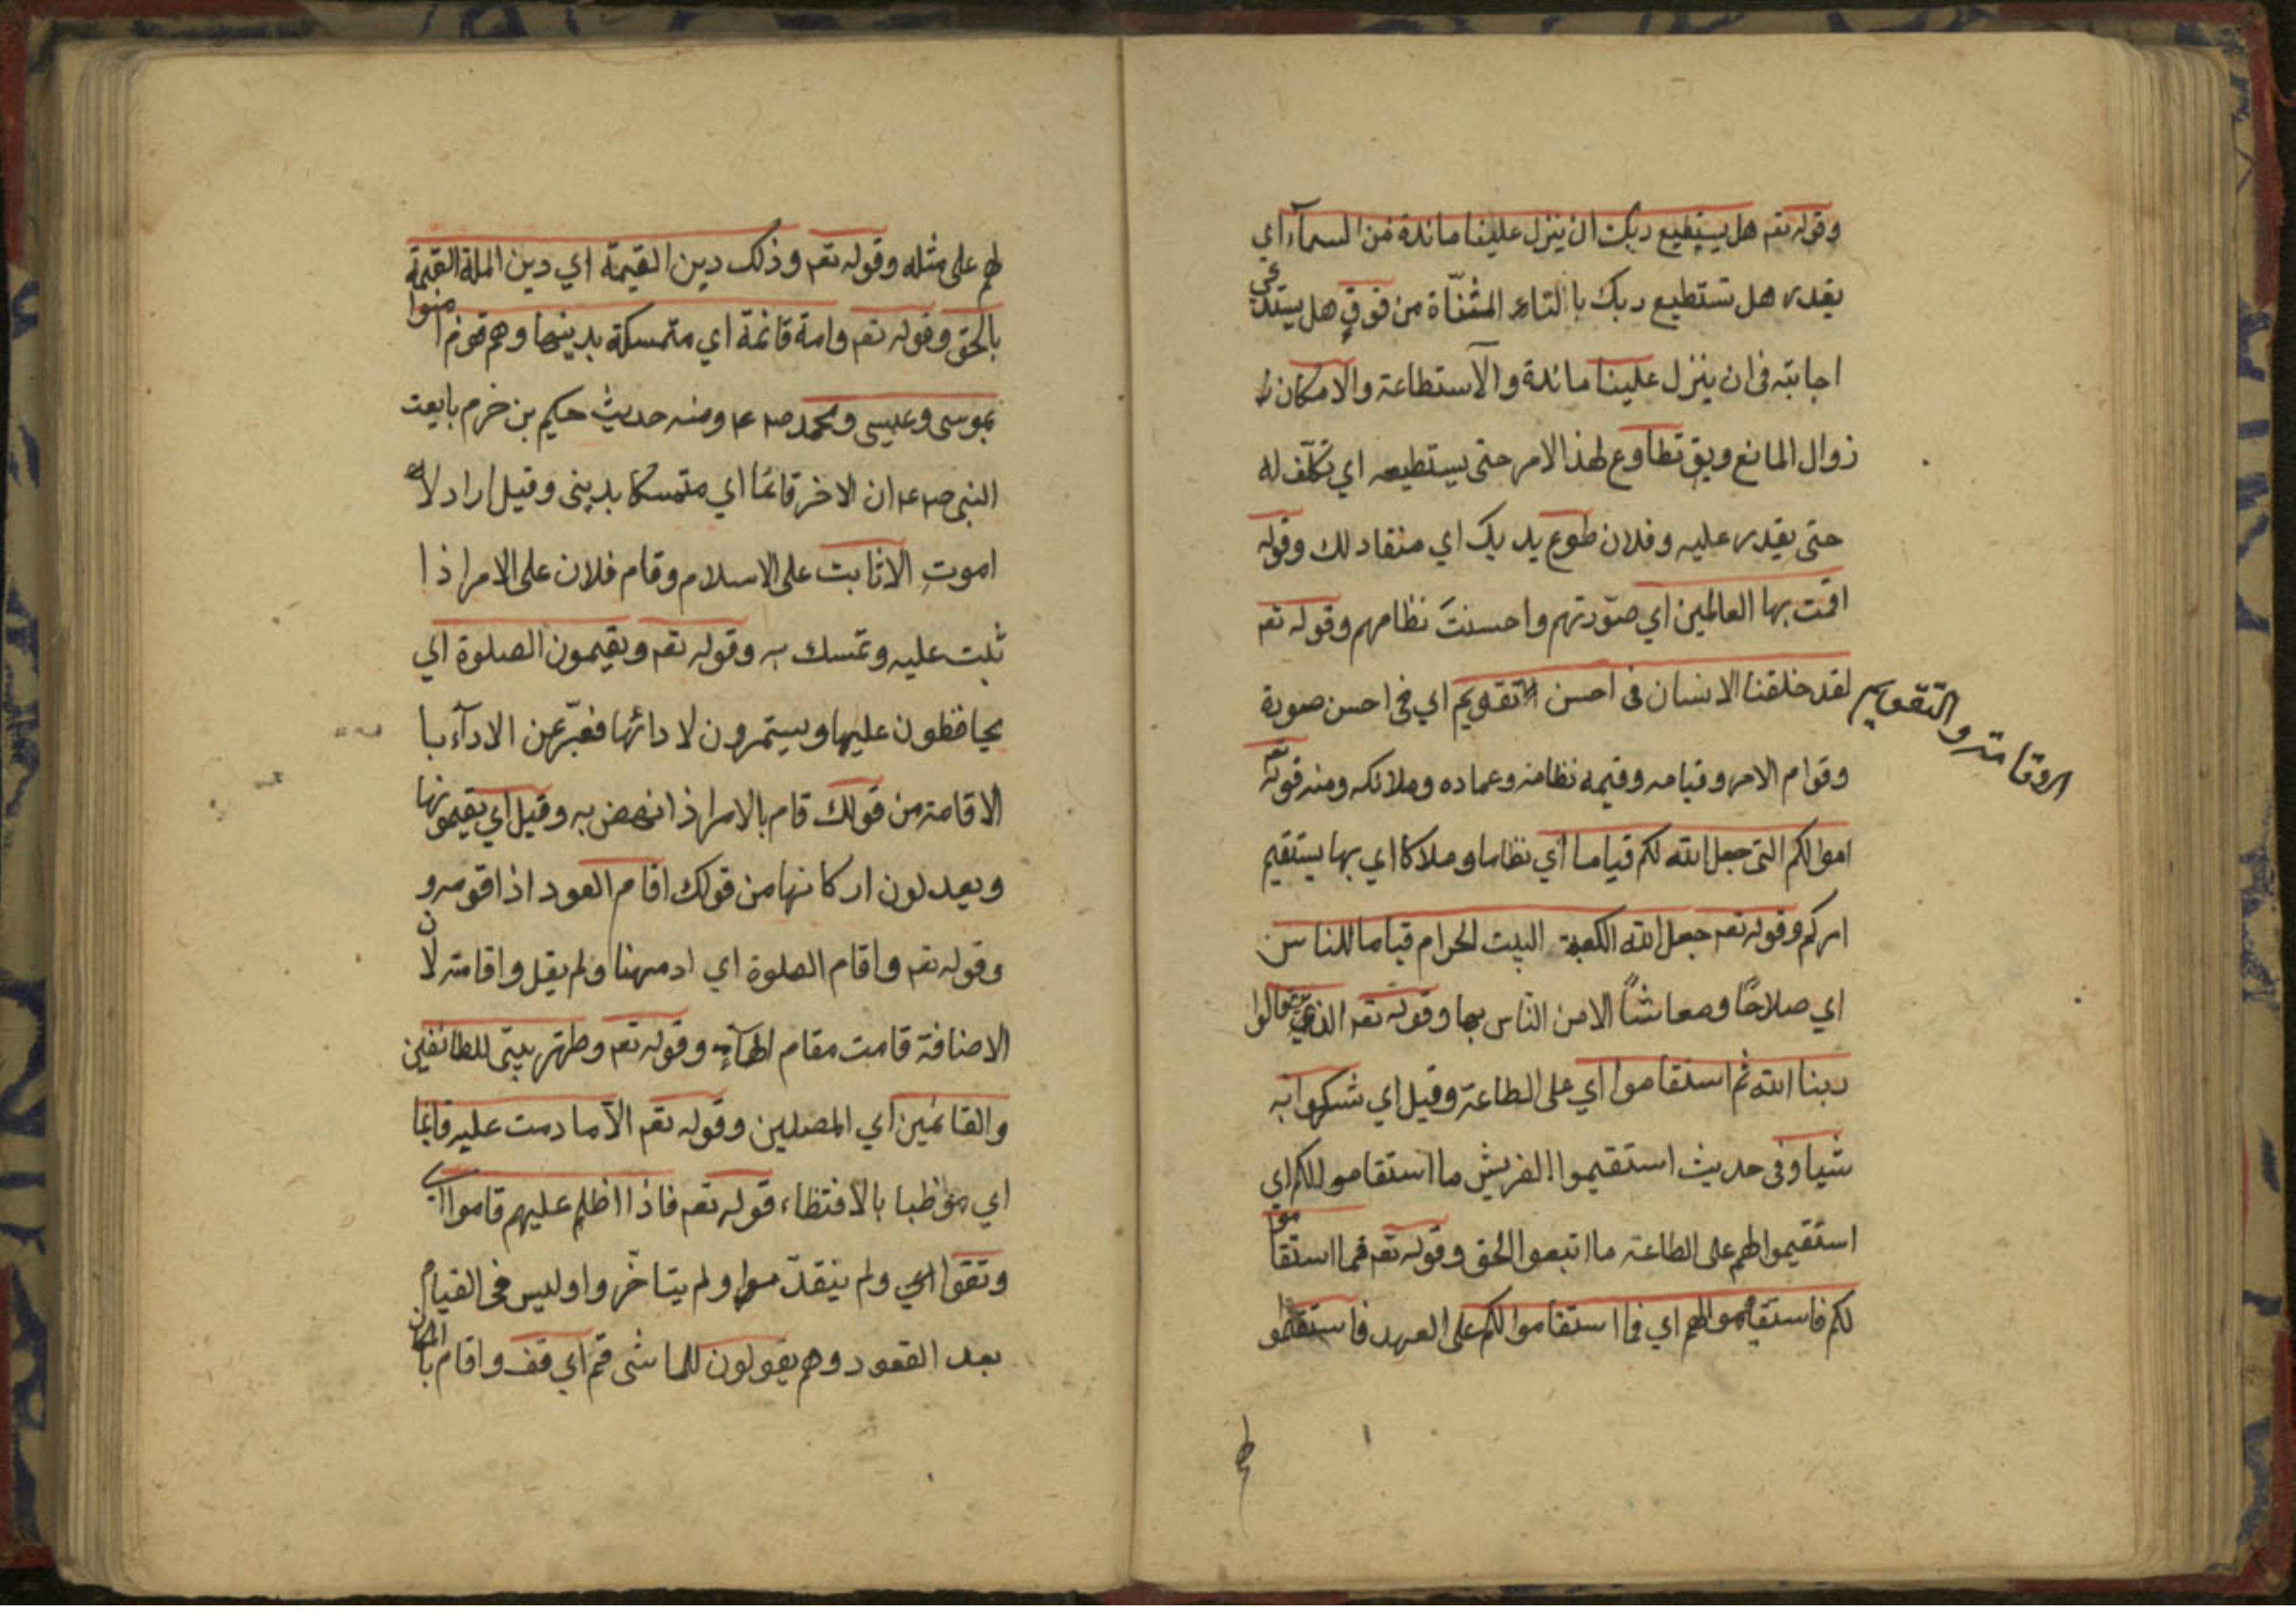 وقوله تعـ هل يستطيع ربك ان ينزل علينا مائدة من السمآء اي
يقدر هل تستطيع ربك بالتاء المثنّاة من فوق هل يستدعي
اجابته في ان ينزل علينا مائدة والاستطاعة والامكان
زوال المانع ويق تطاوع لهذ الامر حتى يستطيعه اي تكلّف له
حتى يقدر عليه وفلان طوع يديك اي منقاد لك وقوله
اقمت بها العالمين اي صوّرتهم واحسنتَ نظامهم وقوله تعـ
لقد خلقنا الانسان فى احسن تقويم اي فى احسن صورة
والتّقويم
وقوام الامر وقيامه وقيمه نظامه وعماده وملائكه ومنه قوله تعـ
اموالكم التى جعل الله لكم قياما اي نظاما وملاكا اي بها يستقيم
امركم وقوله تعـ جعل الله الكعبة البيت الحرام قياما للناس
اي صلاحًا ومعاشًا الامن النّاس بها وقوله تعـ الذين قالوا
ربنا الله ثم استقاموا اي على الطاعة وقيل اي شكروا به
شيا وفى حديث استقيموا القريش ما استقاموا لكم اي
استقيموا لهم على الطاعة ما اتبعوا الحق وقوله تعـ فما استقاموا
لكم فاستقيموا لهم اي فما استقاموا لكم على العهد فاستقيموا
لهم على مثله وقوله تعـ وذلك دين القيمة اي دين الملة القيمة
بالحق وقوله تعـ وامة قائمة اي متمسكة بدينها وهم قوم امنوا
بموسى وعيسى ومحمد ص ع م ومنه حديث حكيم بن خرم بايعت
النبى ص ع م ان لا اخر قائما اي متمسكا بدينى وقيل اراد لا
اموتِ الا ثابت على الاسلام وقام فلان على الامر اذا
ثبت عليه وتمسك به وقوله تعـ ويقيمون الصلوة اي
يحافظون عليها ويستمرون لادائها فعبّر عن الادآء با
الاقامة من قولك قام بالامر اذا نهض به وقيل اي يقيمونها
ويعدلون اركانها من قولك اقام العود اذا قومه و
وقوله تعـ واقام الصلوة اي ادمهنا ولم يقل واقامته لان
الاضافة قامت مقام الهآء وقوله تعـ وطهّر بيتى للطائفين
والقائمين اي المصلين وقوله تعـ الا ما دمت عليه قائما
اي موظبا بالاقتظاء قوله تعـ فاذا اظلم عليهم قاموا اي
وتقوا اي ولم يتقدّموا ولم يتاخّروا وليس فى القيام
بعد القعود وهم يقولون للماشى قم اي قف واقام بالمكان